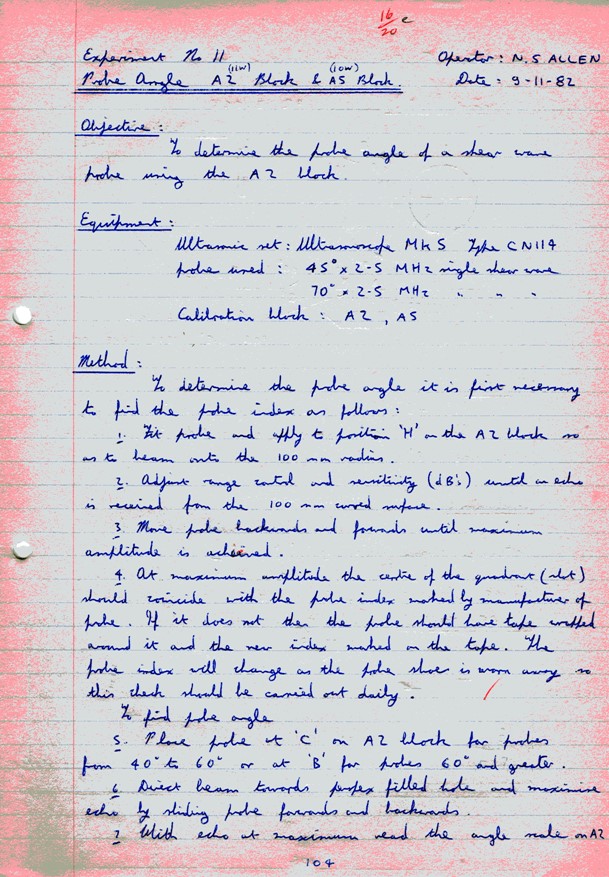 16/20 c
Experiment No 11 Operator: N.S ALLEN
(11W) (10W)
Probe Angle A2 Block & A5 Block. Date: 9-11-82
Objective:
To determine the probe angle of a shear wave
probe using the A2 block.
Equipment:
Ultrasonic set: Ultrasonoscope Mk 5 Type CN114
probe used: 45° x 2-5 MHz single shear wave
70° x 2-5 MHz " " "
Calibration block: A2, A5
Method:
To determine the probe angle it is first necessary
to find the probe index as follows:
1. Fit probe and apply to position 'H' on the A2 block so
as to beam onto the 100 mm radius.
2. Adjust range control and sensitivity (dB's) until an echo
is received from the 100 mm curved surface.
3. Move probe backwards and forwards until maximum
amplitude is achieved.
4. At maximum amplitude the centre of the quadrant (slot)
should coincide with the probe index marked by manufacturer of
probe. If it does not then the probe should have tape wrapped
around it and the new index marked on the tape. The
probe index will change as the probe shoe is worn away so
this check should be carried out daily.
To find probe angle
5. Place probe at 'C' on A2 block for probes
from 40° to 60° or at 'B' for probes 60° and greater.
6. Direct beam towards perspex filled hole and maximise
echo by sliding probe forwards and backwards.
7. With echo at maximum read the angle scale on A2
104